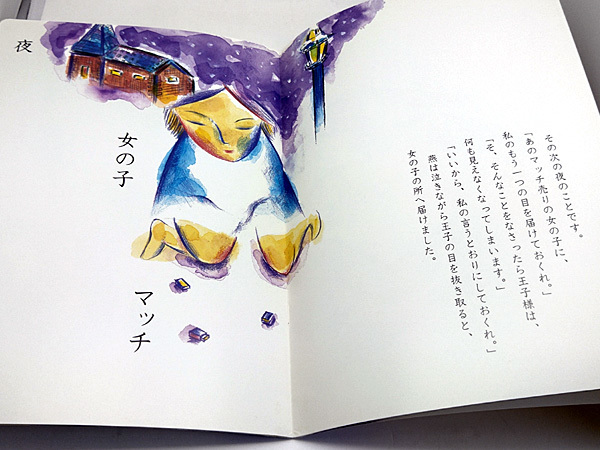 夜
女の子
マッチ
その次の夜のことです。
「あのマッチ売りの女の子に、
私のもう一つの目を届けておくれ。」
「そ、そんなことをなさったら王子様は、
何も見えなくなってしまいます。」
「いいから、私の言うとおりにしておくれ。」
燕は泣きながら王子の目を抜き取ると、
女の子の所へ届けました。